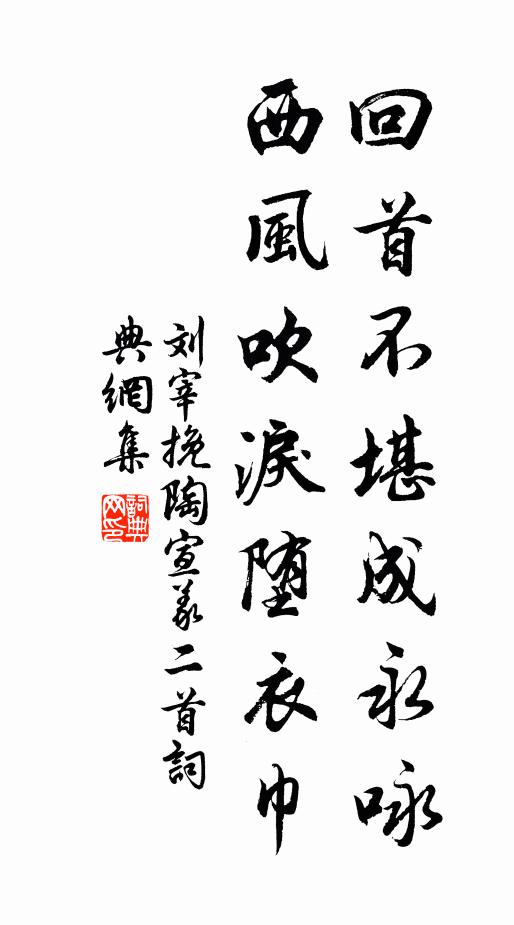 回首不堪成永咏
西風吹淚堕衣巾
刘宰挽陶宣义二首詞
典網集
詞典网印